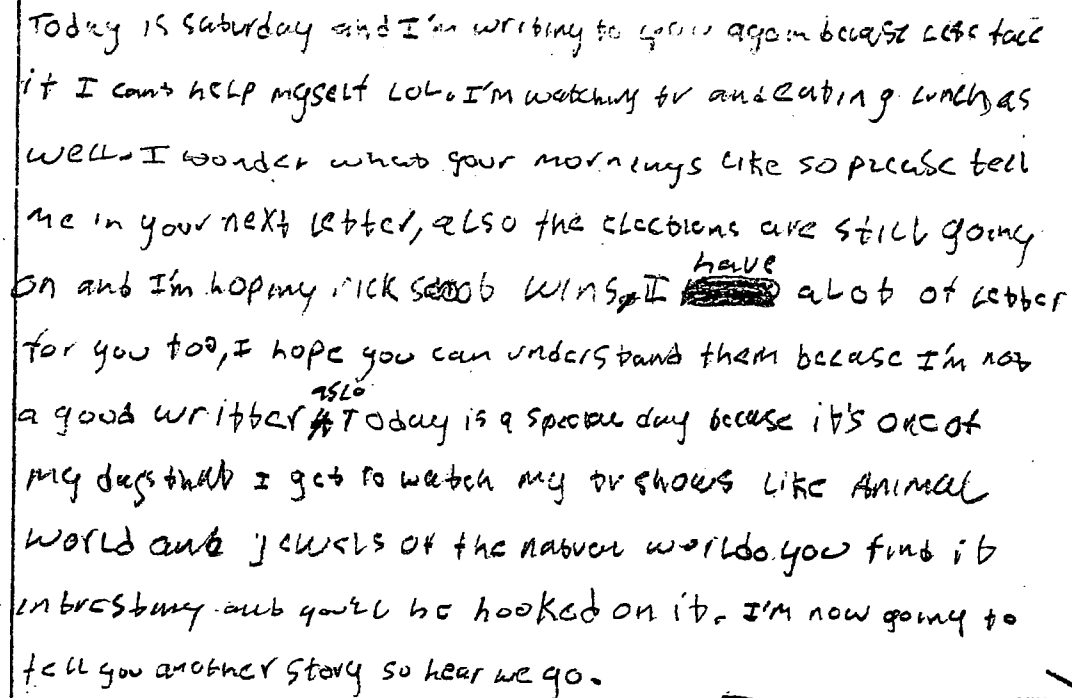 Today is saturday and I'm writing to you again because lets face
it I cant help myself LOL. I'm watching tv and eating lunch, as
well. I wonder what your mornings like so please tell
me in your next letter, also the elections are still going
on and I'm hoping rick scott wins, I have a lot of letter
for you too, I hope you can understand them becease I'm not
a good writter aslo Today is a special day because it's one of
my days that I get to watch my tv shows like Animal
world and jewels of the natural world. you find it
intresting and you'll be hooked on it. I'm now going to
tell you another story so hear we go.